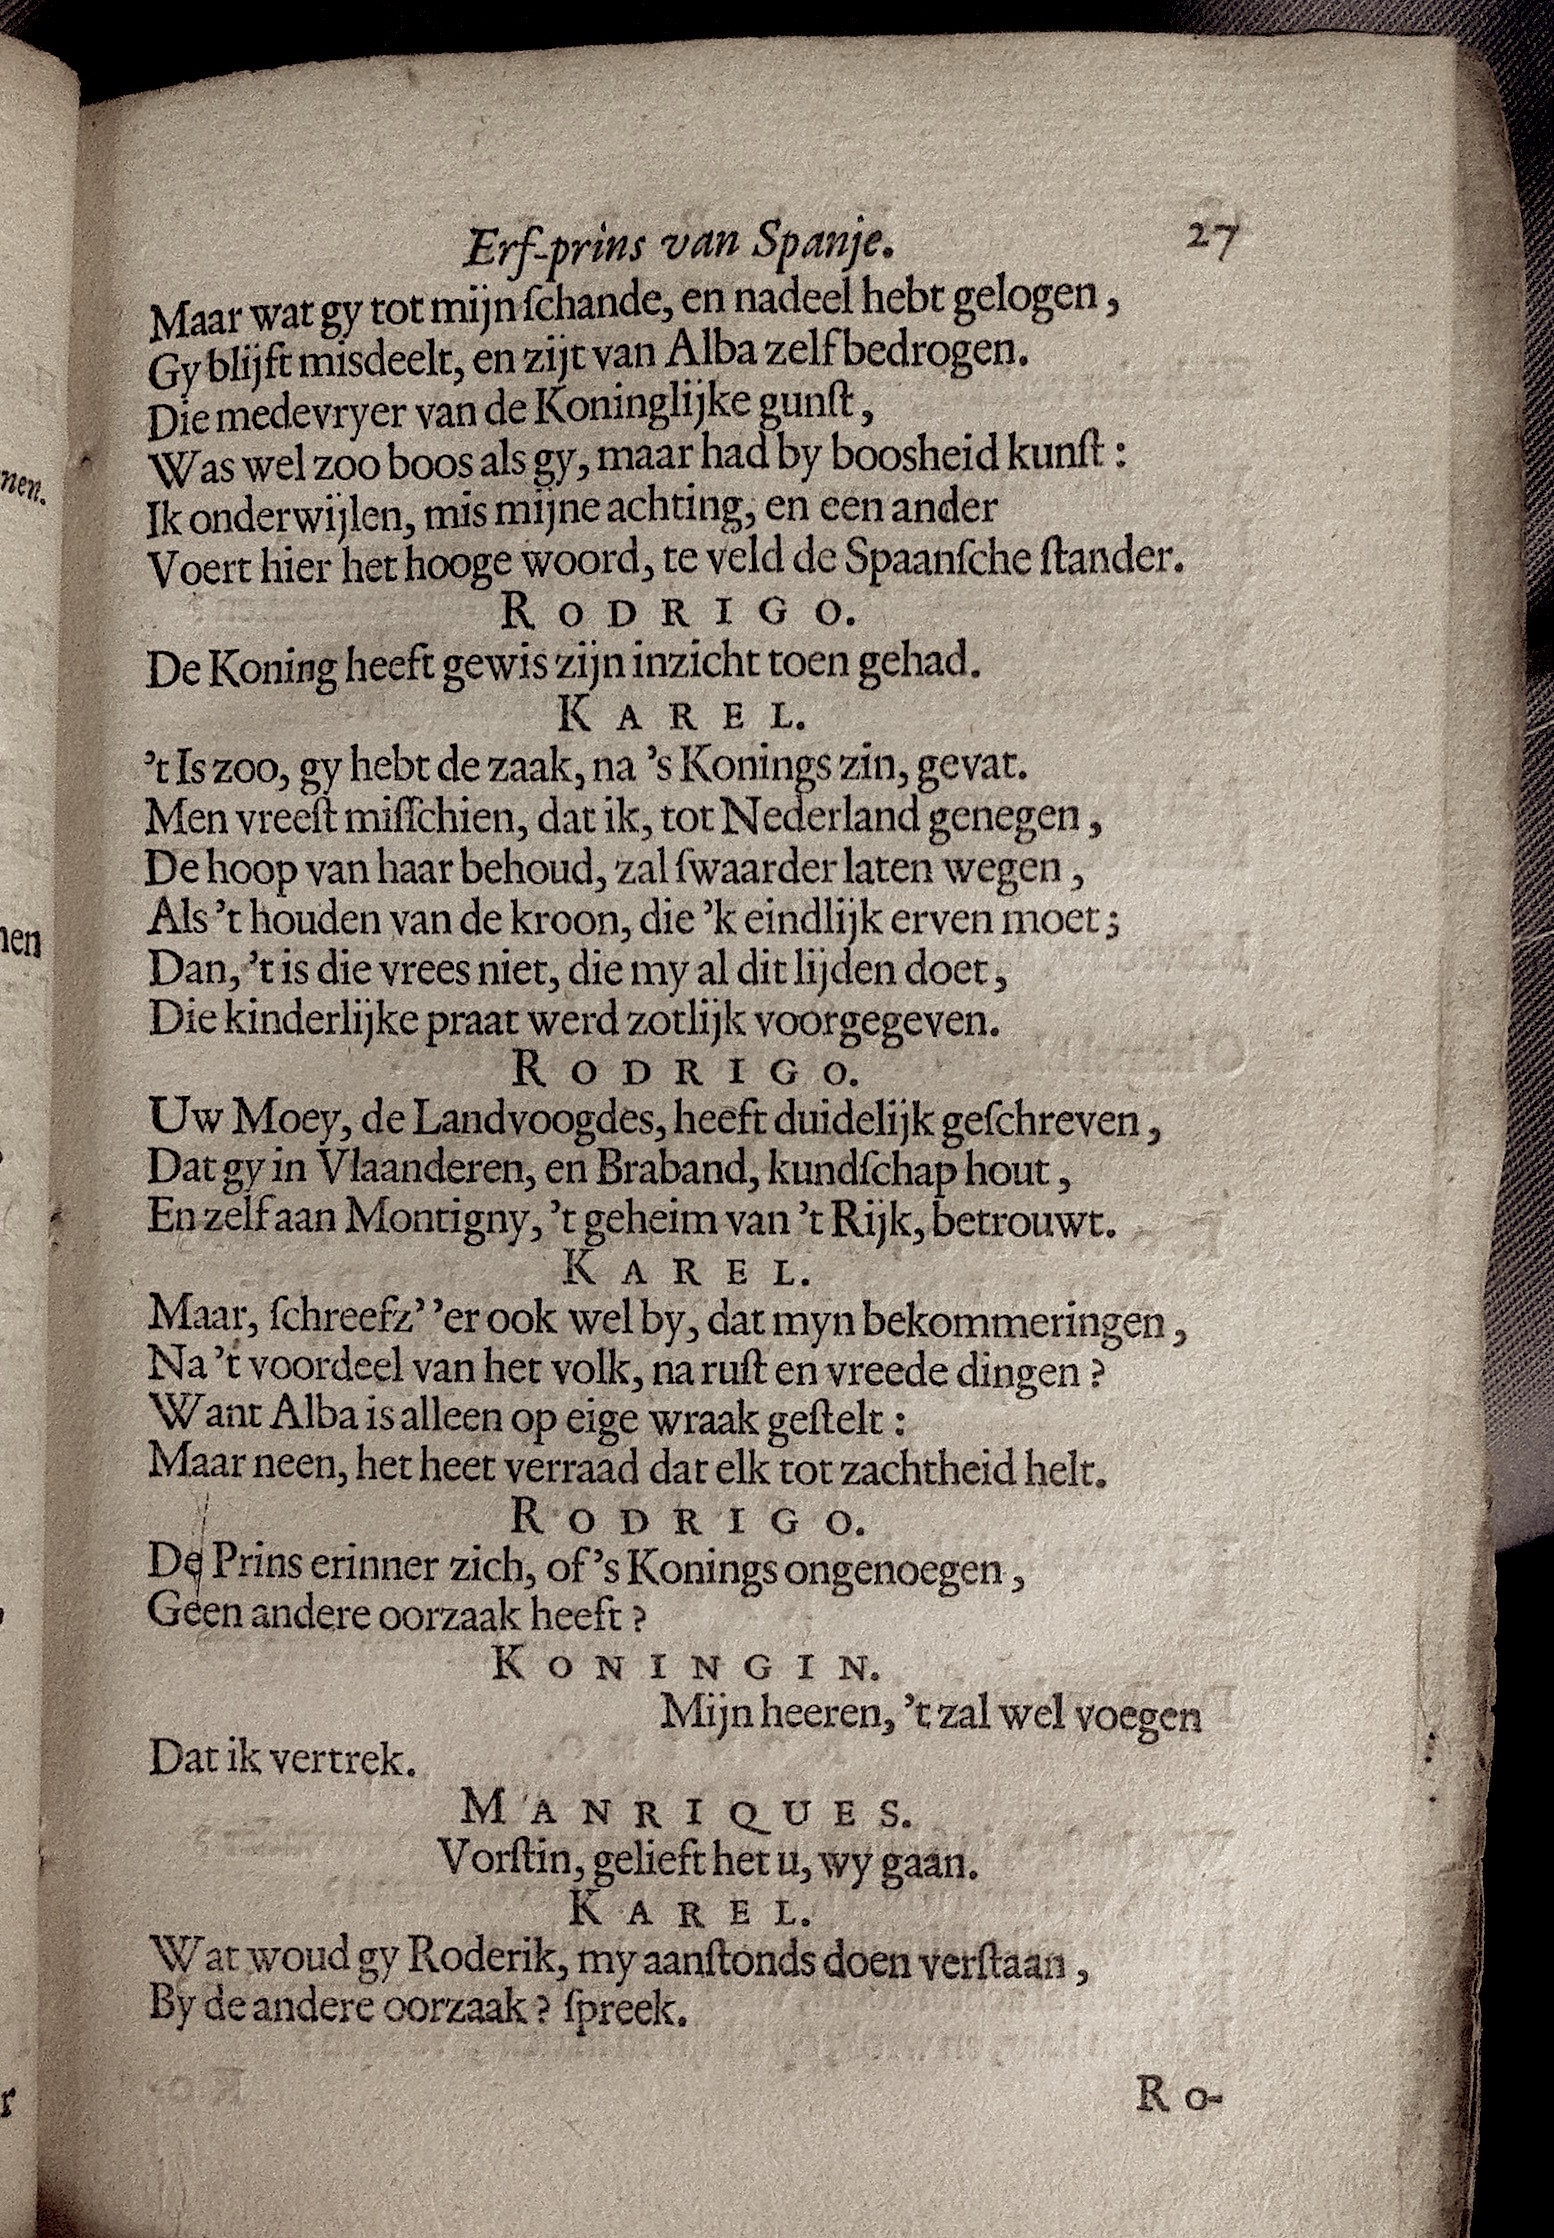 Erf-prins van Spanje. 27
Maar wat gy tot mijn ſchande, en nadeel hebt gelogen,
Gy blijft misdeelt, en zijt van Alba zelf bedrogen.
Die medevryer van de Koninglijke gunſt,
Was wel zoo boos als gy, maar had by boosheid kunſt:
Ik onderwijlen, mis mijne achting, en een ander
Voert hier het hooge woord, te veld de Spaanſche ſtander.
RODRIGO.
De Koning heeft gewis zijn inzicht toen gehad.
KAREL.
't Is zoo, gy hebt de zaak, na 's Konings zin, gevat.
Men vreeſt miſſchien, dat ik, tot Nederland genegen,
De hoop van haar behoud, zal ſwaarder laten wegen,
Als 't houden van de kroon, die 'k eindlijk erven moet;
Dan, 't is die vrees niet, die my al dit lijden doet,
Die kinderlijke praat werd zotlijk voorgegeven.
RODRIGO.
Uw Moey, de Landvoogdes, heeft duidelijk geſchreven,
Dat gy in Vlaanderen, en Braband, kundſchap hout,
En zelf aan Montigny, 't geheim van 't Rijk, betrouwt.
KAREL.
Maar, ſchreefz' 'er ook wel by, dat myn bekommeringen,
Na 't voordeel van het volk, na ruſt en vreede dingen?
Want Alba is alleen op eige wraak geſtelt:
Maar neen, het heet verraad dat elk tot zachtheid helt.
RODRIGO.
De Prins erinner zich, of 's Konings ongenoegen,
Geen andere oorzaak heeft?
KONINGIN.
Mijn heeren, 't zal wel voegen
Dat ik vertrek.
MANRIQUES.
Vorſtin, gelieft het u, wy gaan.
KAREL.
Wat woud gy Roderik, my aanſtonds doen verſtaan,
By de andere oorzaak? ſpreek.
Ro-
nen.
nen
r